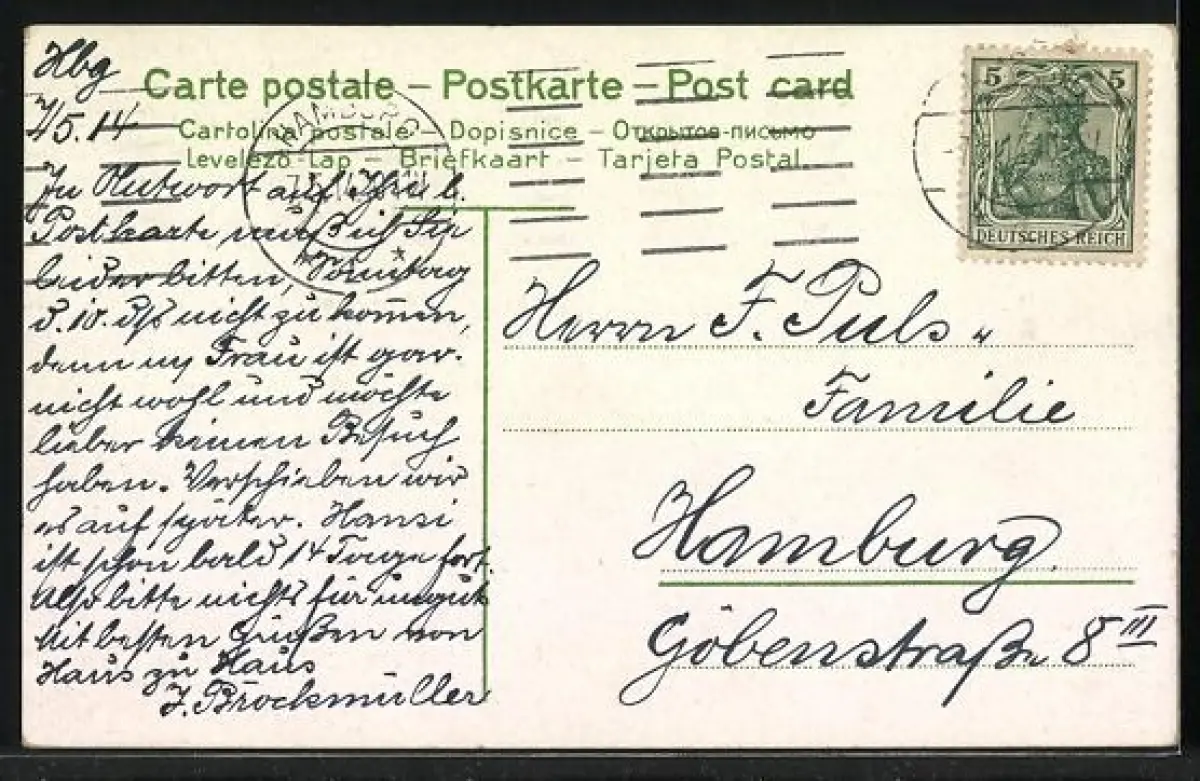 Hbg
7/5.14
Carte postale – Postkarte – Post card
Cartolina postale – Dopisnice – Открытое письмо
Levelező-Lap – Briefkaart – Tarjeta Postal.
HAMBURG
5 5
DEUTSCHES REICH
In Antwort auf Ihre l.
Postkarte muß ich Sie
leider bitten, Sonntag
d. 10. ds nicht zu kom̅en,
denn m Frau ist gar
nicht wohl und möchte
lieber keinen Besuch
haben. Verschieben wir
es auf später. Hansi
ist schon bald 14 Tage fort.
Also bitte nichts für ungut
Mit besten Grüßen von
Haus zu Haus
J. Brockmüller
Herrn F. Puls u
Familie
Hamburg
Göbenstraße 8 III